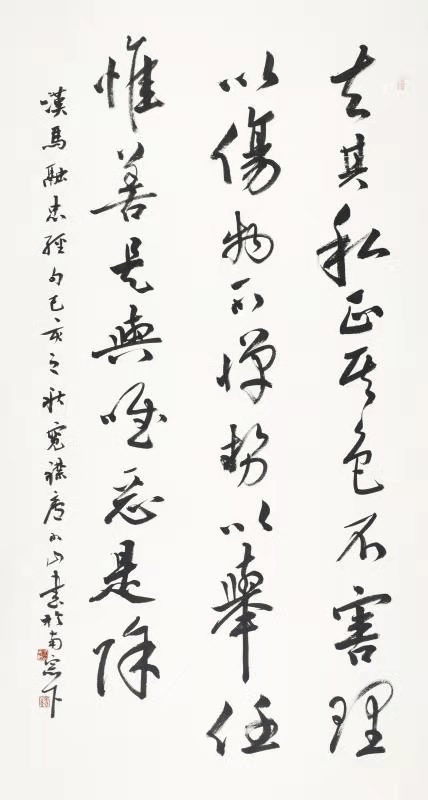 去其私正其色不害理
以傷物不憚勢以舉任
惟善是與唯惡是除
漢馬融忠經句己亥之秋寬襟唐小山書於南窗下